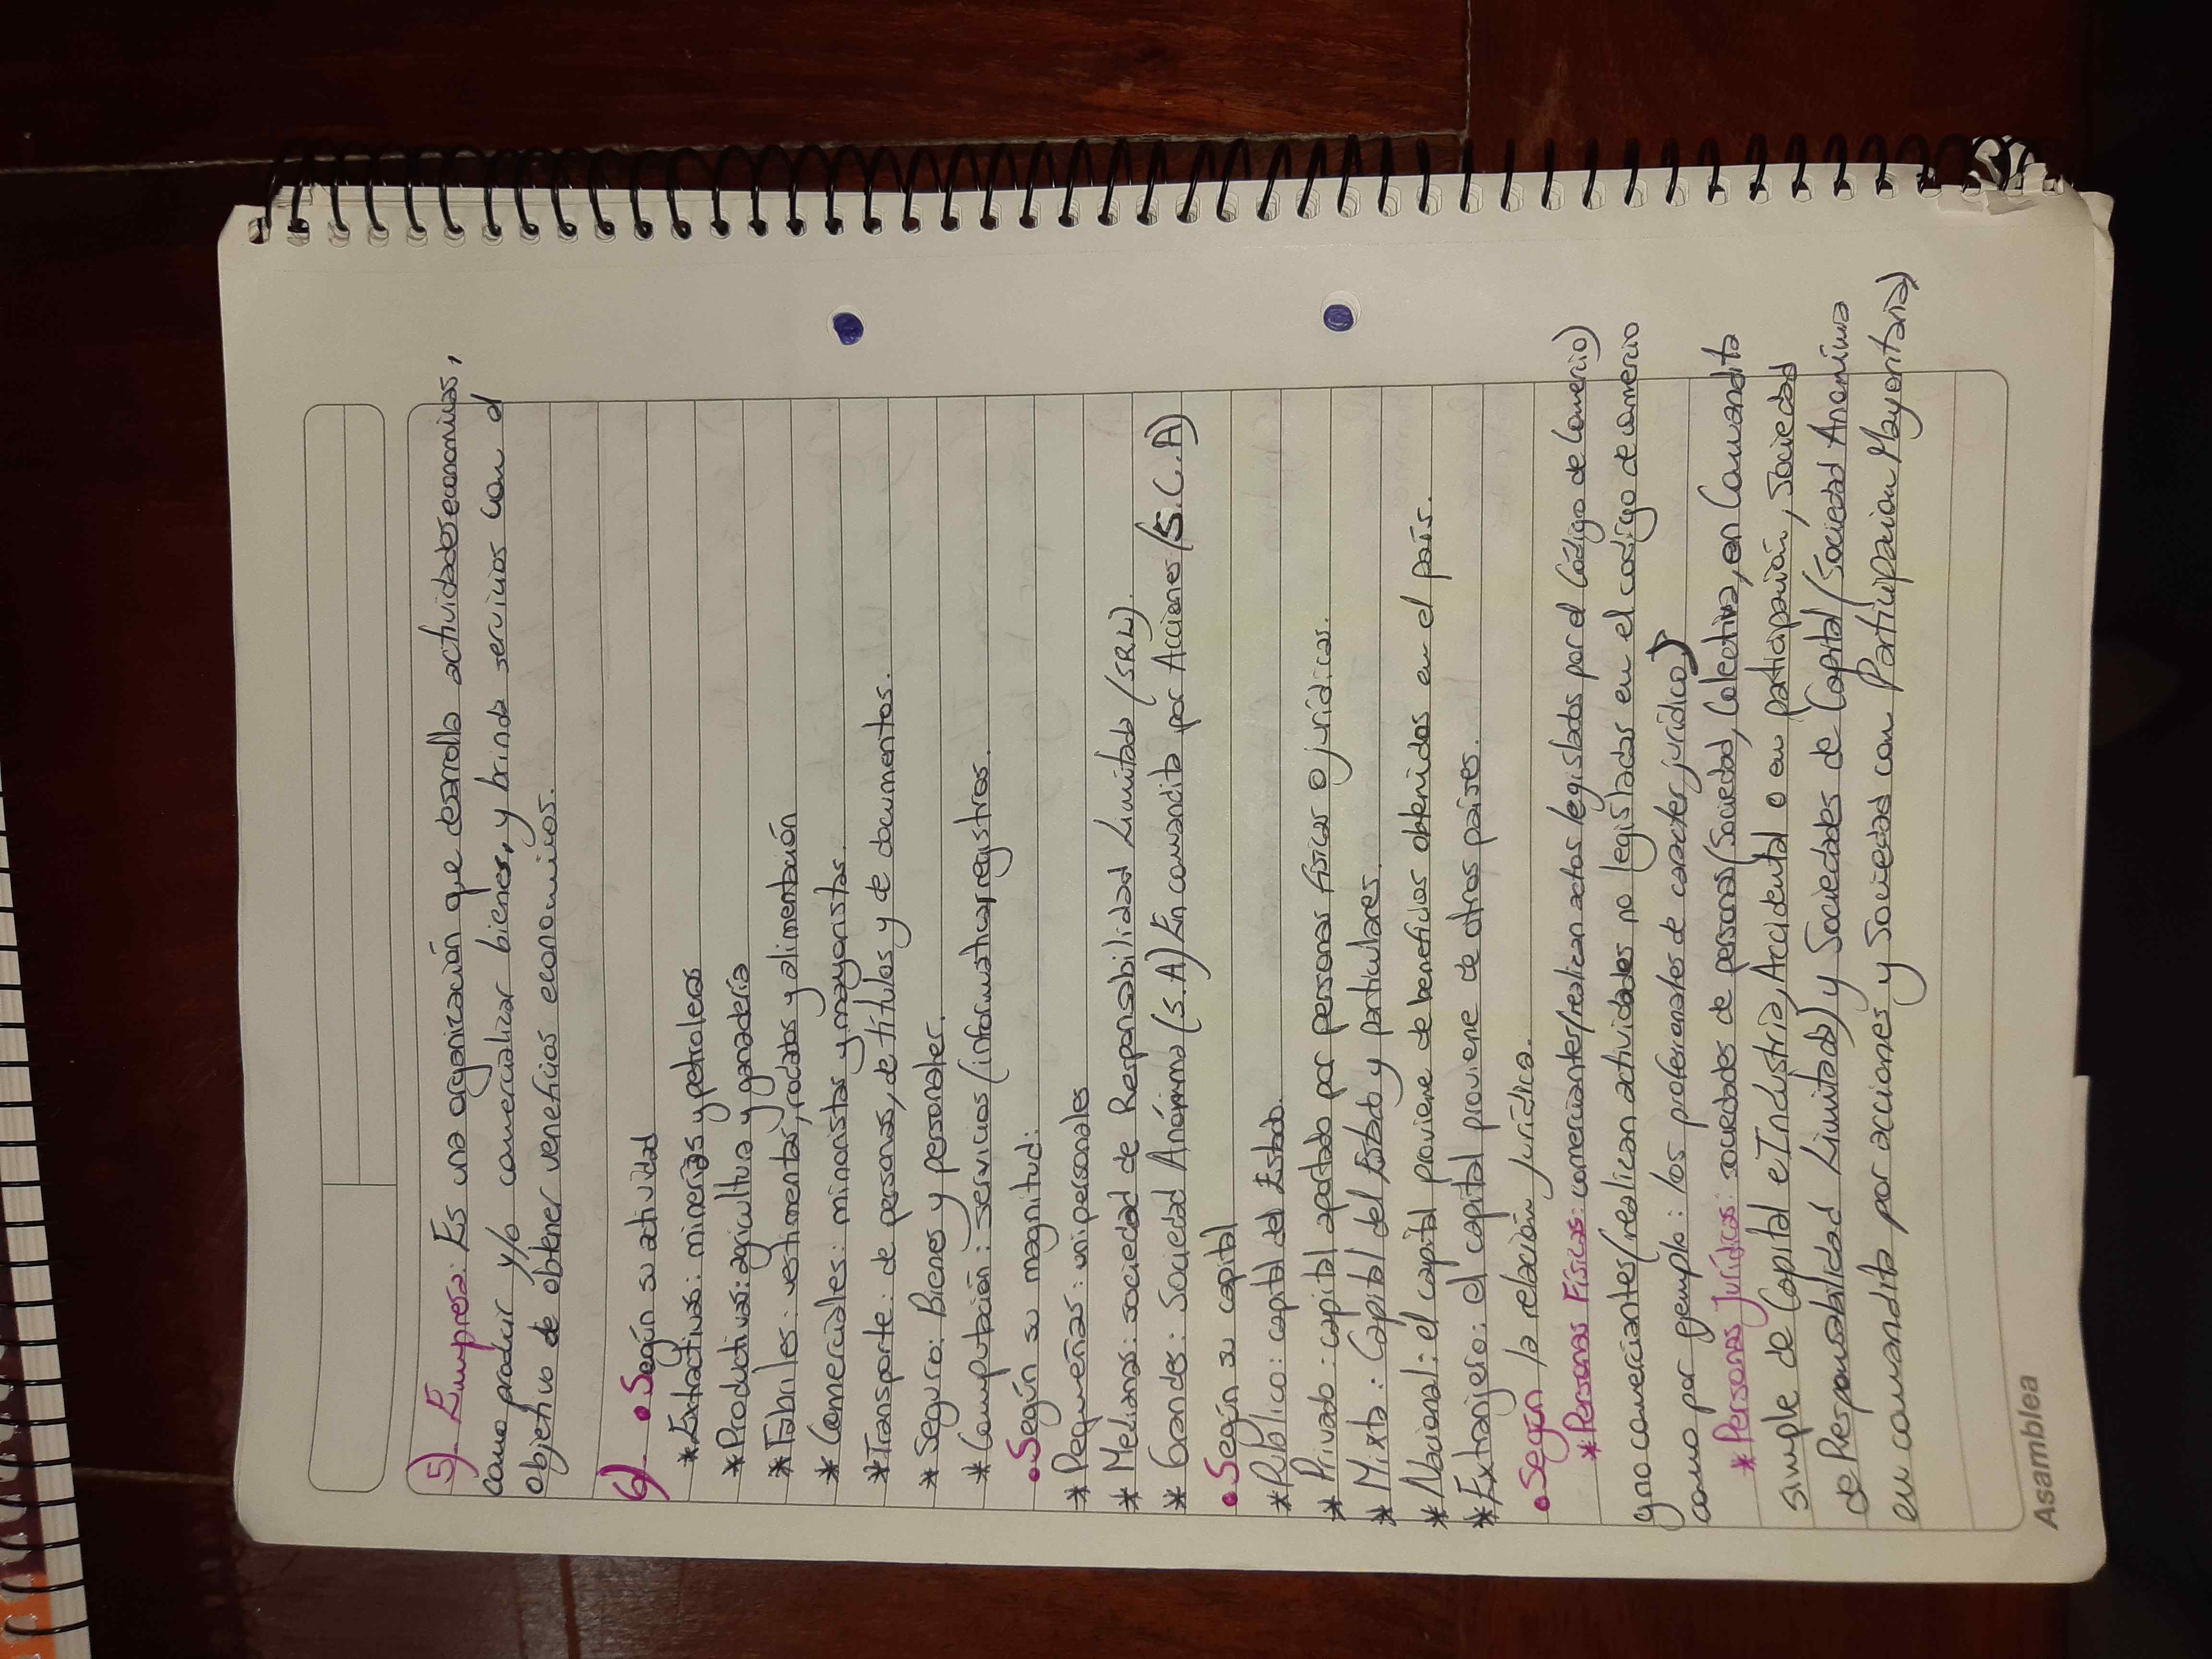 5) Empresa: Es una organización que desarrolla actividades economicas,
como producir y/o comercializar bienes, y brinda servicios con el
objetivo de obtener veneficios economicos.
6) • Según su actividad
* Extractivas: mineras y petroleras
* Productivas: agricultura y ganadería
* Fabriles: vestimentas, rodados y alimentación
* Comerciales: minoristas y mayoristas.
* Transporte: de personas, de títulos y de documentos.
* Seguro: Bienes y personales.
* Computación: servicios (informaticar registros.
• Según su magnitud:
* Pequeñas: unipersonales
* Medianas: sociedad de Responsabilidad Limitada (SRL).
* Grandes: Sociedad Anónima (S.A) En comandita por Acciones (S.C.A)
• Según su capital
* Público: capital del Estado.
* Privado: capital aportado por personas físicas o jurídicas.
* Mixta: Capital del Estado y particulares.
* Nacional: el capital proviene de beneficios obtenidos en el país.
* Extranjero: el capital proviene de otros países.
• Según la relación jurídica.
* Personas Físicas: comerciantes (realizan actos legislados por el Código de Comercio)
y no comerciantes (realizan actividades no legisladas en el codigo de comercio
como por ejemplo: los profesionales de caracter jurídico)
* Personas Jurídicas: sociedades de personas (Sociedad, Colectiva, en Comandita
simple de Capital e Industria, Accidental o en participación, Sociedad
de Responsabilidad Limitada) y Sociedades de Capital (Sociedad Anonima
en comandita por acciones y Sociedad con Participacion Mayoritaria)
Asamblea